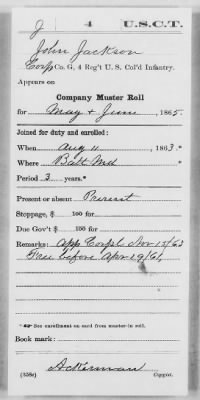 J 4 U.S.C.T.
John Jackson
Corp Co. G, 4 Reg't U. S. Col'd Infantry.
Appears on
Company Muster Roll
for May & June, 1865.
Joined for duty and enrolled:
When Aug 11, 1863.*
Where Balt Md *
Period 3 years.*
Present or absent Present
Stoppage, $ 100 for
Due Gov't $ 100 for
Remarks: App Corpl Nov 15/63
Free before Apr 19/61.
* See enrollment on card from muster-in roll.
Book mark:
Ackerman
(358c) Copyist.